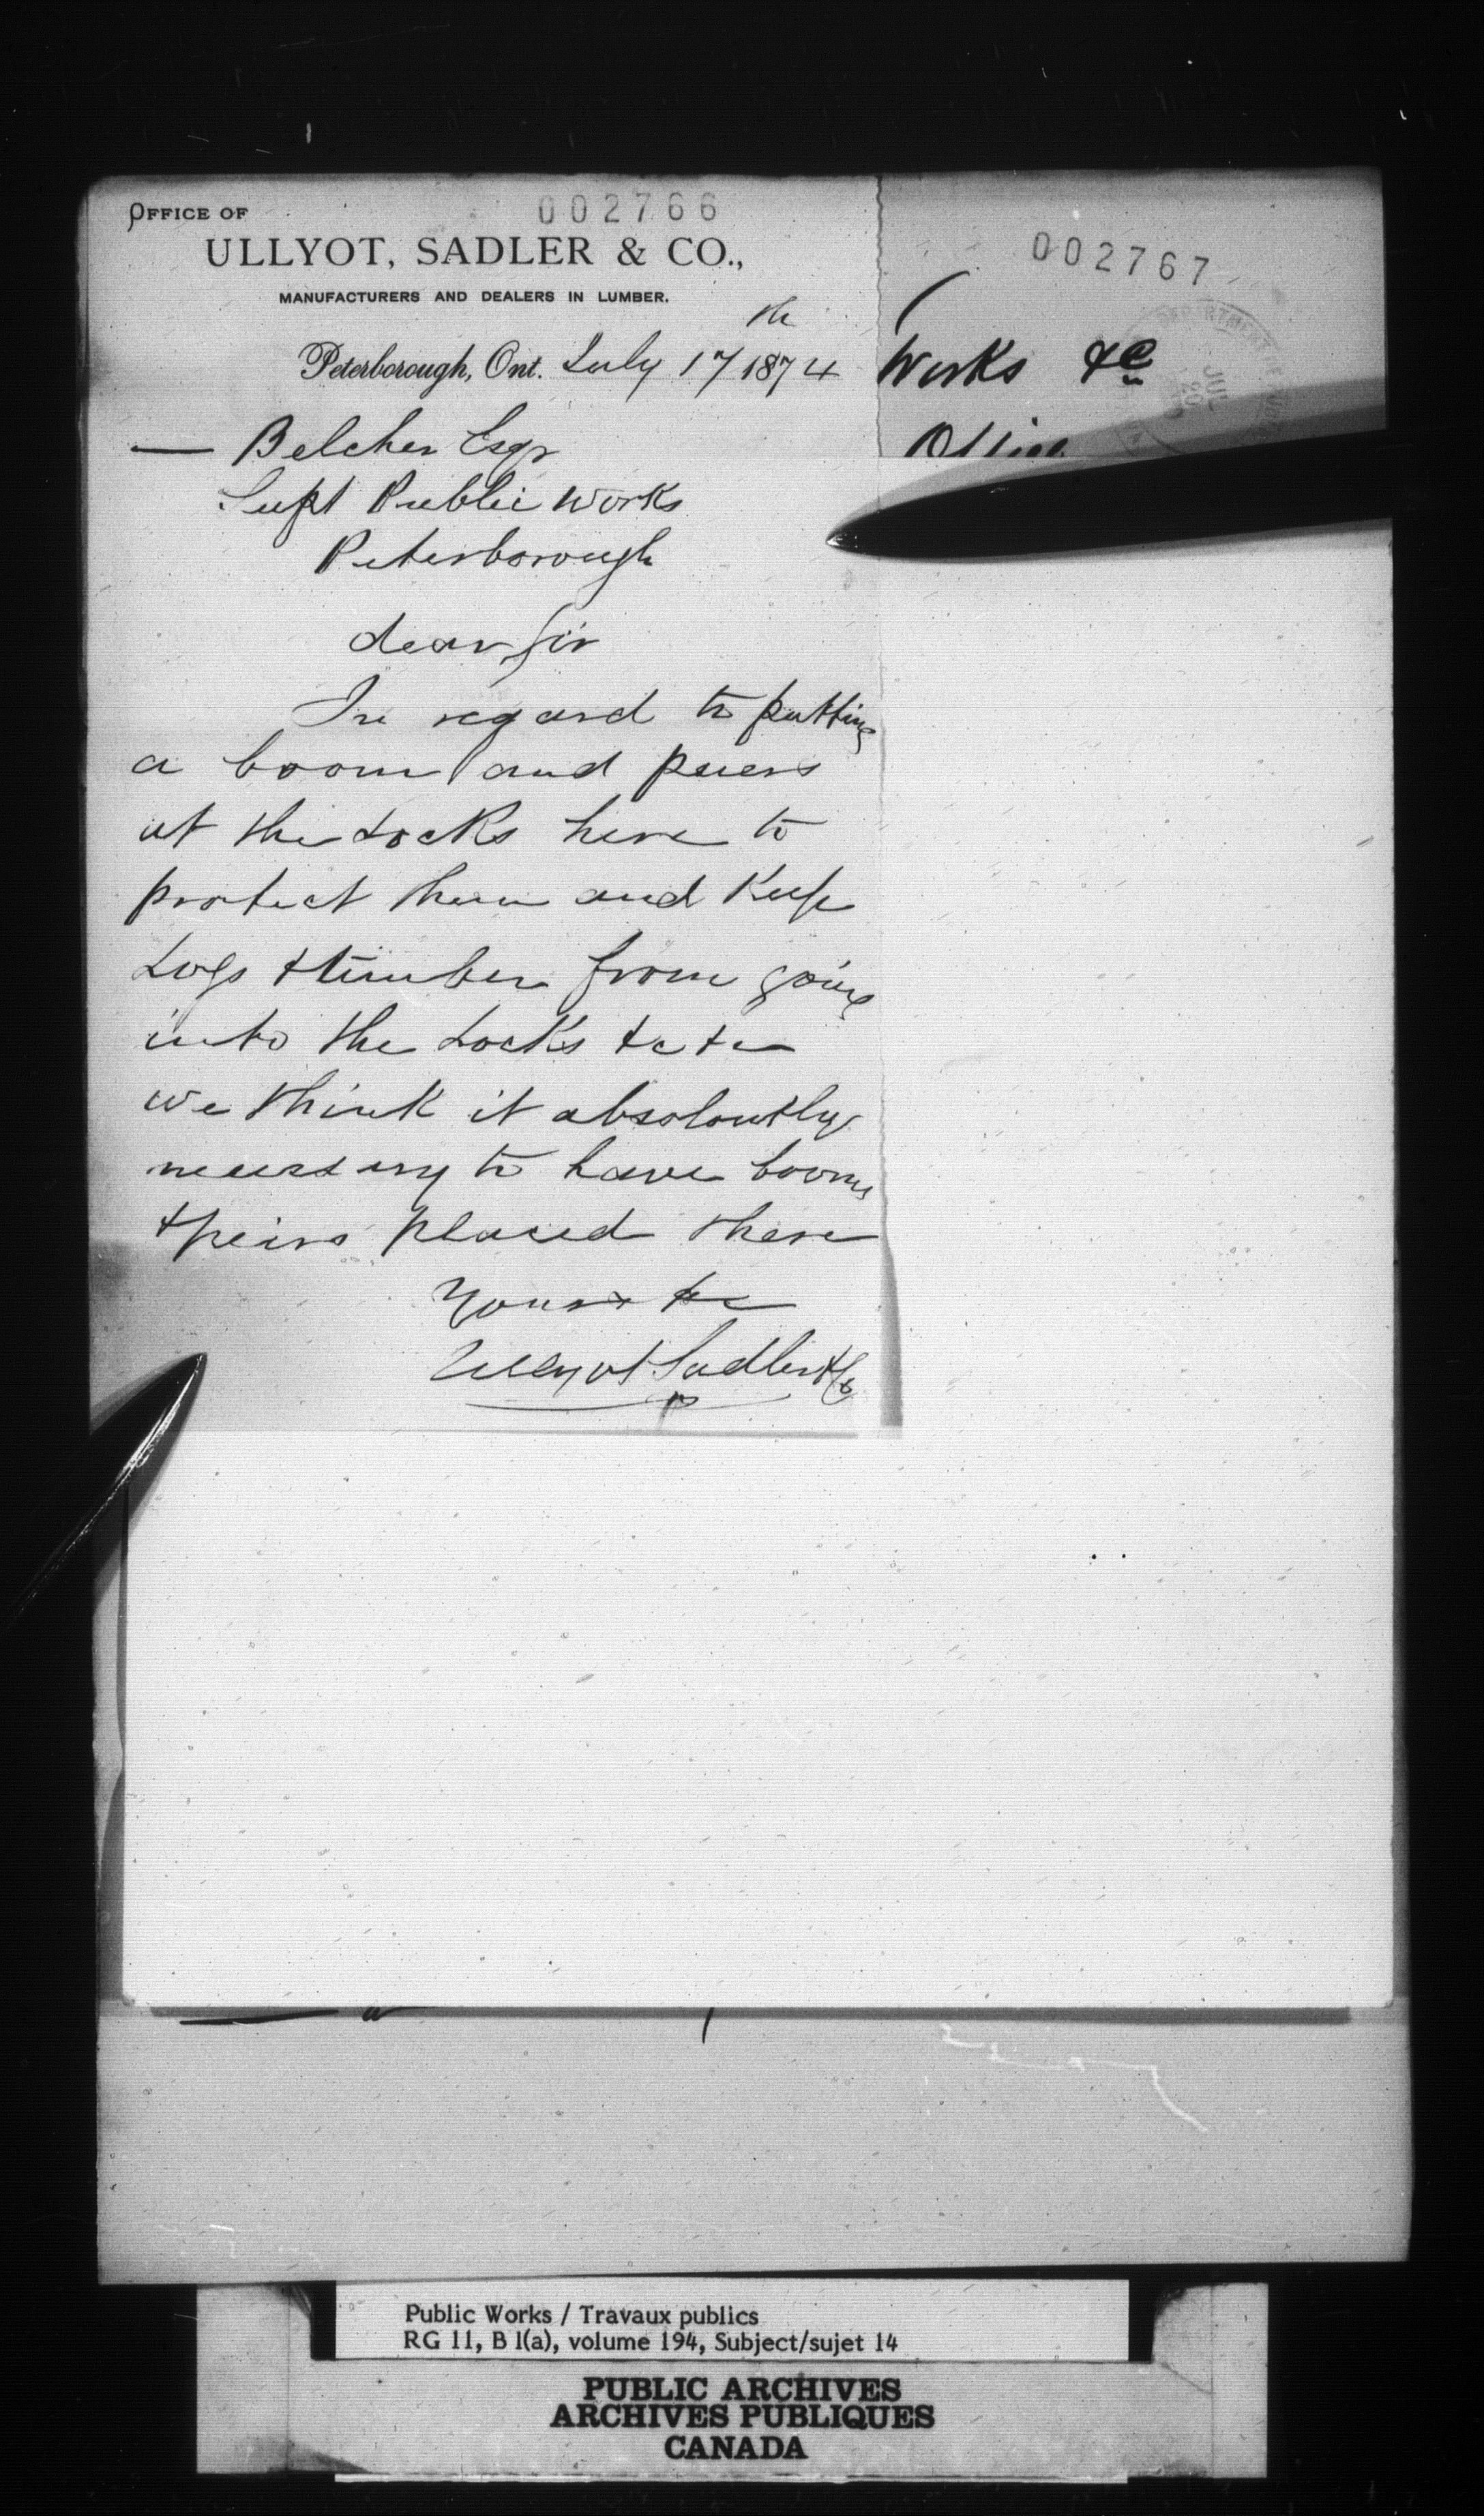 OFFICE OF
002766
ULLYOT, SADLER & CO.,
MANUFACTURERS AND DEALERS IN LUMBER.
Peterborough, Ont. July 17th 1874
— Belcher Esqr
Supt Public Works
Peterborough
dear Sir
In regard to putting
a boom and peers
at the Locks here to
protect them and Keep
Logs & timber from going
into the Locks &c &c
we think it absoloutly
necessary to have booms
& peirs placed there
Yours &c
Ullyot Sadler & Co
002767
Works &c
Office
DEPARTMENT
JUL
20
Public Works / Travaux publics
RG 11, B 1(a), volume 194, Subject/sujet 14
PUBLIC ARCHIVES
ARCHIVES PUBLIQUES
CANADA